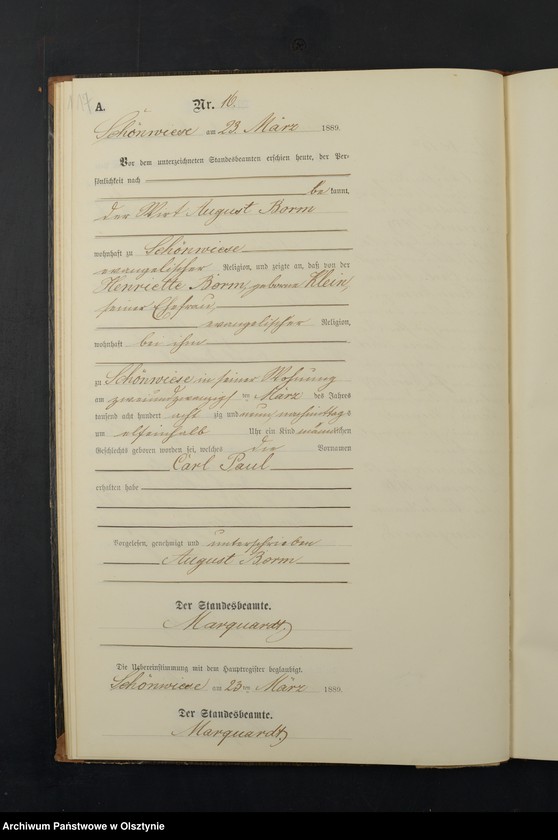 117
A.
Nr. 16.
Schönwiese am 23. März 1889.
Vor dem unterzeichneten Standesbeamten erschien heute, der Per-
sönlichkeit nach
be kannt,
der Wirt August Borm
wohnhaft zu Schönwiese
evangelischer Religion, und zeigte an, daß von der
Henriette Borm, geborne Klein,
seiner Ehefrau,
evangelischer Religion,
wohnhaft bei ihm
zu Schönwiese in seiner Wohnung
am zweiundzwanzigsten März des Jahres
tausend acht hundert acht zig und neun nachmittags
um elfeinhalb Uhr ein Kind männlichen
Geschlechts geboren worden sei, welches die Vornamen
Carl Paul
erhalten habe
Vorgelesen, genehmigt und unterschrieben
August Borm
Der Standesbeamte.
Marquardt.
Die Uebereinstimmung mit dem Hauptregister beglaubigt.
Schönwiese am 23ten März 1889.
Der Standesbeamte.
Marquardt.
Archiwum Państwowe w Olsztynie